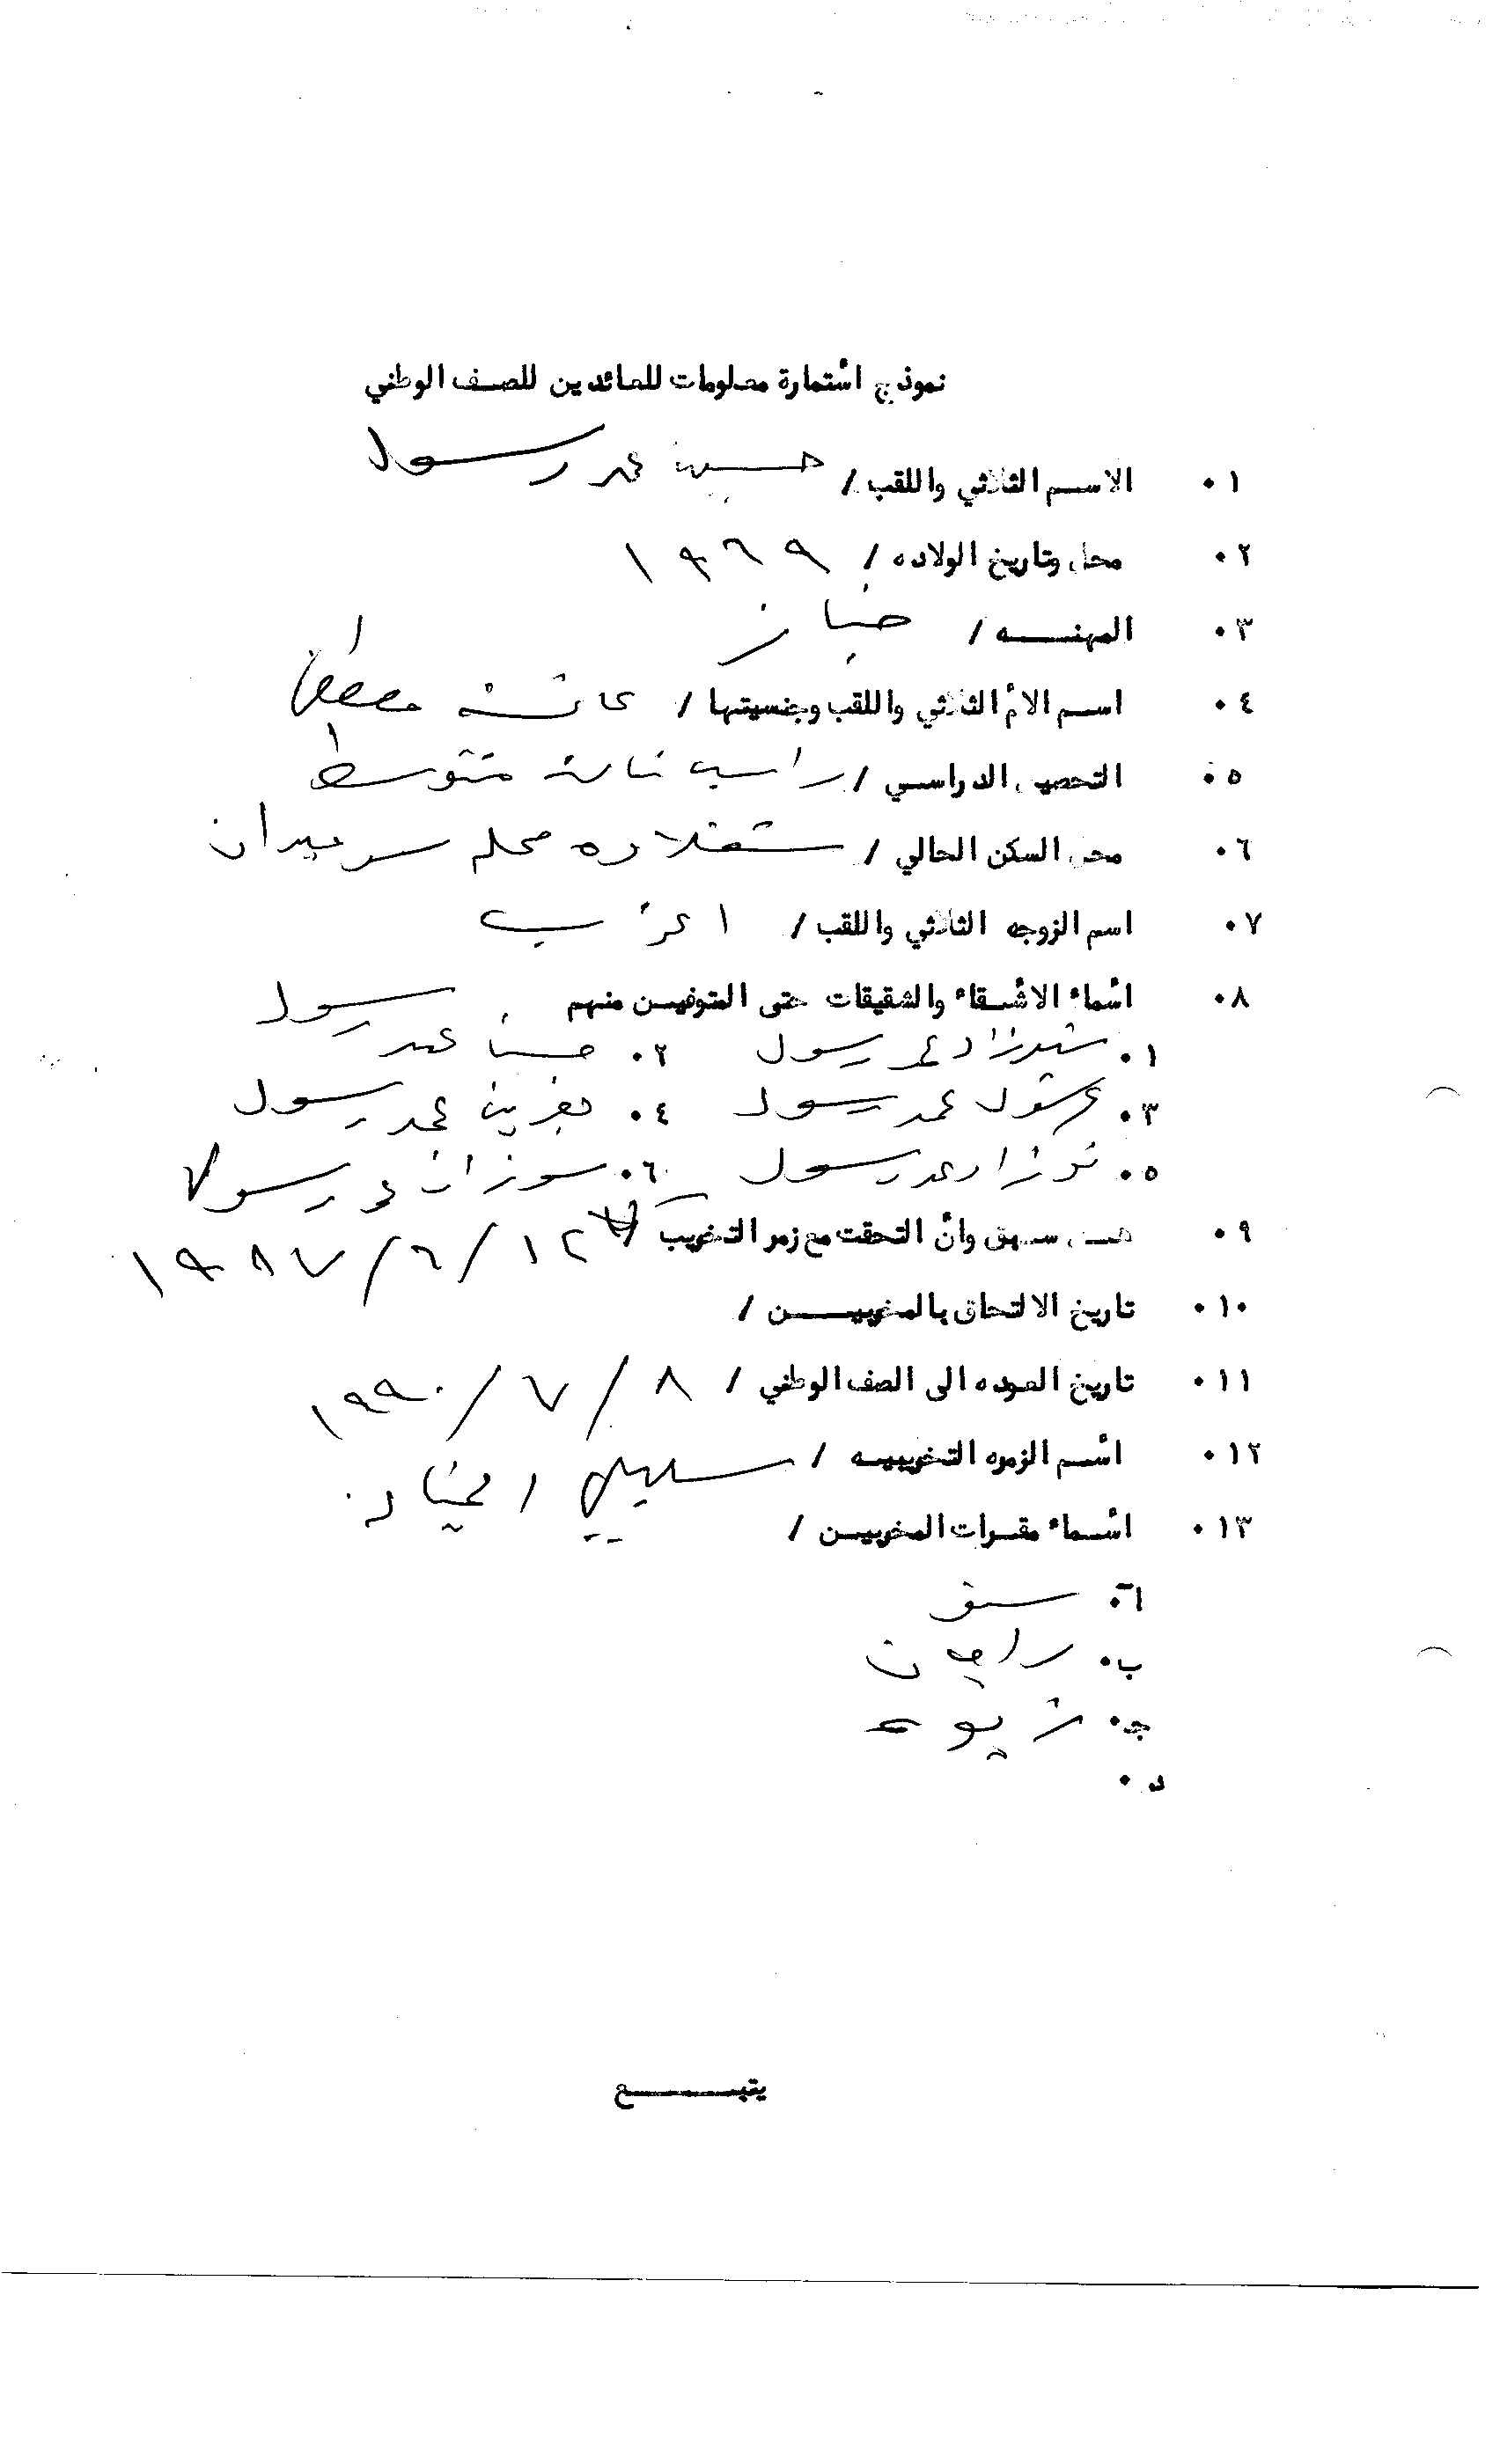 نموذج استمارة معلومات للعائدين للصف الوطني
٠١ الاسم الثلاثي واللقب / حسين محمد رسول
٠٢ محل وتاريخ الولاده / ١٩٦٩
٠٣ المهنه / خباز
٠٤ اسم الام الثلاثي واللقب وجنسيتها / عائشه مصطفى
٠٥ التحصيل الدراسي / راسب ثالث متوسط
٠٦ محل السكن الحالي / شقلاوه محله سرميدان
٠٧ اسم الزوجه الثلاثي واللقب / اعزب
٠٨ اسماء الاشقاء والشقيقات حتى المتوفين منهم
٠١ شيرزاد محمد رسول ٠٢ محمد رسول
٠٣ محمد رسول ٠٤ محمد رسول
٠٥ محمد رسول ٠٦ سوزان محمد رسول
٠٩ هل سبق وان التحقت مع زمر التخريب / ١٢ / ٦ / ١٩٨٧
٠١٠ تاريخ الالتحاق بالمخربين /
٠١١ تاريخ العوده الى الصف الوطني / ٨ / ٧ / ١٩٩٠
٠١٢ اسم الزمره التخريبيه / سليلي الخيانه
٠١٣ اسماء مقرات المخربين /
٠أ
ب٠
ج٠
د٠
يتبع